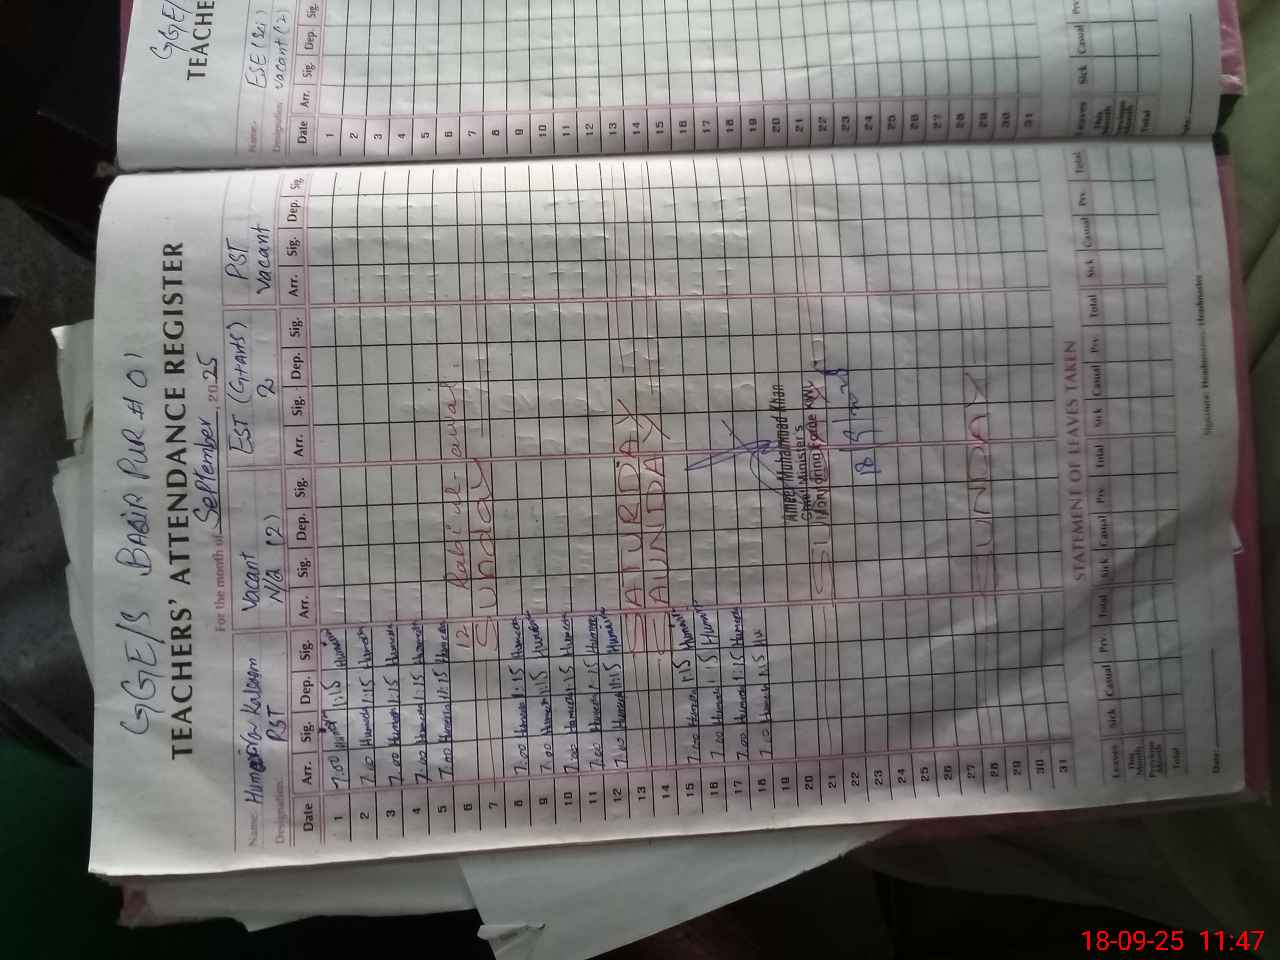 GGE/S BASIR PUR # 01
TEACHERS' ATTENDANCE REGISTER
For the month of September, 2025
Name: Humaira Kalsom Vacant EST (G+Arts) PST
Designation: PST N/a (2) 2 Vacant
Date Arr. Sig. Dep. Sig. Arr. Sig. Dep. Sig. Arr. Sig. Dep. Sig. Arr. Sig. Dep. Sig.
1 7.00 1:15
2 7.00 Humera 1:15 Humera
3 7.00 Humera 1:15 Humera
4 7.00 Humera 1:15 Humera
5 7.00 Humera 1:15 Humera
6 12 Rabi ul- awal.
7 Sunday
8 7.00 Humera 1:15 Humera
9 7.00 Humera 1:15 Humera
10 7.00 Humera 1:15 Humera
11 7.00 Humera 1:15 Humera
12 7.00 Humera 1:15 Humera
13 SATURDAY
14 SAUNDAY
15 7.00 Humera 1:15 Humera
16 7.00 Humera 1:15 Humera
17 7.00 Humera 1:15 Humera
18 7.00 Humera 1:15 Hu
19
20 Ameer Muhammad Khan
Chief Minister's
21 SUNDAY Monitoring Force KWL
22 18/9/2025
23
24
25
26
27
28 SUNDAY
29
30
31
STATEMENT OF LEAVES TAKEN
Leaves Sick Casual Prv. Total Sick Casual Prv. Total Sick Casual Prv. Total Sick Casual Prv. Total
This Month
Previous Month
Total
Date: Signature: Headmistress / Headmaster
GGE/
TEACHE
Name: ESE (Sci)
Designation: Vacant (2)
Date Arr. Sig. Dep. Sig.
1
2
3
4
5
6
7
8
9
10
11
12
13
14
15
16
17
18
19
20
21
22
23
24
25
26
27
28
29
30
31
Leaves Sick Casual Prv.
This Month
Previous Month
Total
18-09-25 11:47